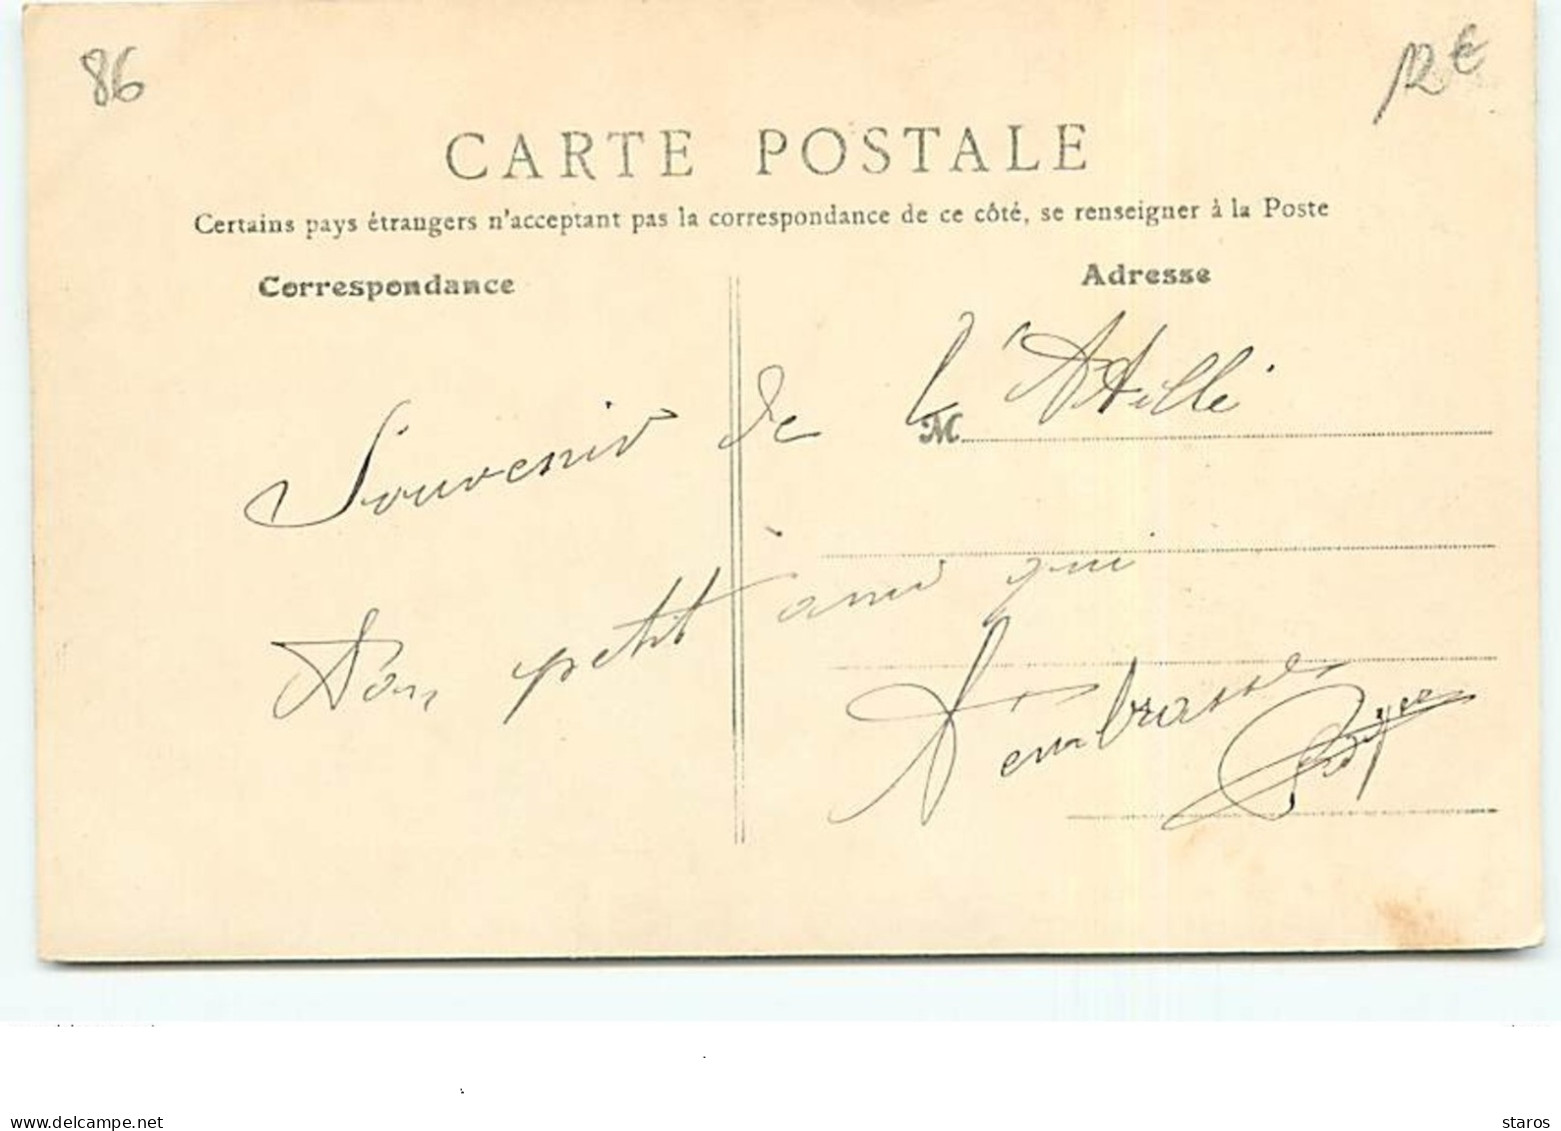 86
12€
CARTE POSTALE
Certains pays étrangers n'acceptant pas la correspondance de ce côté, se renseigner à la Poste
Correspondance
Adresse
M
Souvenir de
petit ami qui
t'embrasse
www.delcampe.net
staros